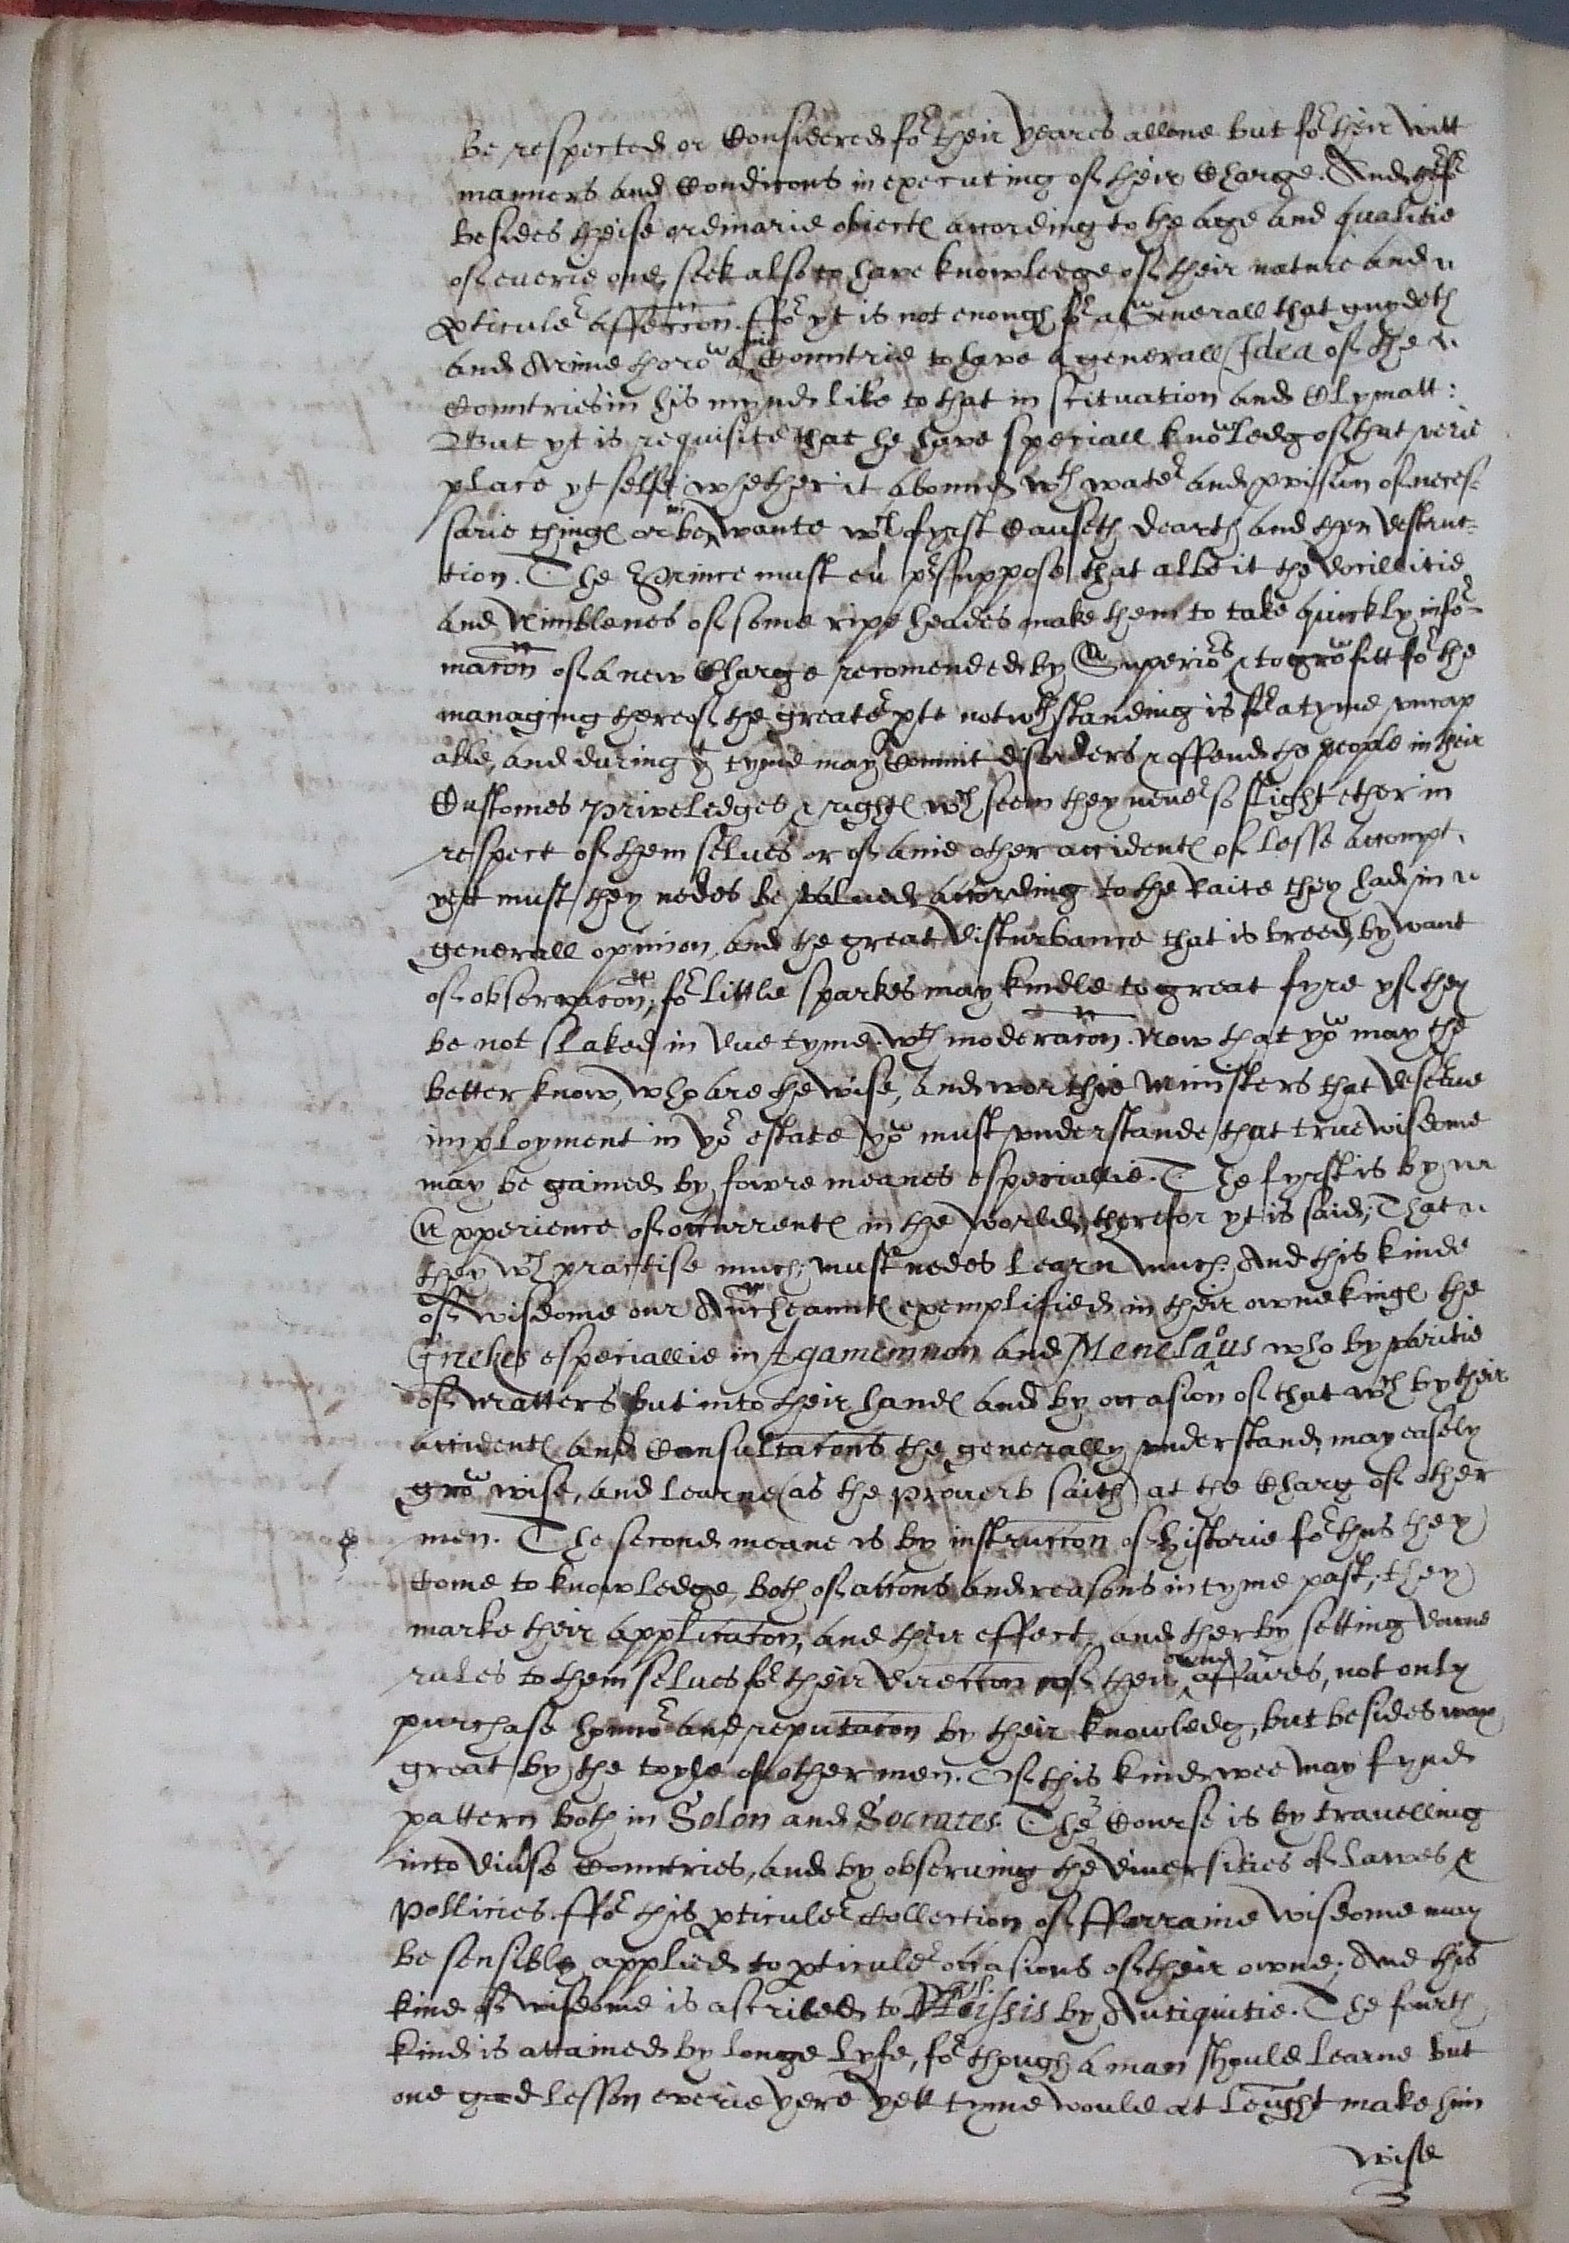 be respected or Considered for their yeares allone but for their witt
manners and Conditions in executing of their Charge. And
besides theise ordinarie obiectes according to the age and qualitie
of euerie one, seek also to have knowledge of their nature and
pticuler affeccon. ffor yt is not enough for a Generall that guydeth
and Armie thorow a Countrie to have a generall Idea of the
Countries in his mynd like to that in scituation and Clymatt:
But yt is requisite that he have speciall knowledg of that verie
place yt selfe whether it abound wth water and pvision of neces-
sarie thinges or be wante wch fyrst Causeth dearth and then destruc-
tion. The Prince must eu psuppose that albeit the docillitie
and Nimblenes of some ripe heades make them to take quickly infor-
macon of a new Charge recomended by Superiors & to grow fitt for the
managing thereof the greater pte notwthstanding is for a tyme vncap
able, and during yt tyme may Commit disorders & offend the people in their
Customes Priveledges & rightes wch seem they neuer so slight ether in
respect of them selues or of anie other accidentes of lesse accompt,
yett must they nedes be valued according to the raite they had in
generall opinion, and the great disturbance that is breed by want
of observacon; for little sparkes may kindle to great fyre yf they
be not slaked in due tyme wth moderacon. Now that yow may the
better know, who are the wise, and worthie Ministers that deserue
imployment in yor estate yow must vnderstande that true wisdome
may be gained by fowre meanes especiallie. The fyrst is by
Experience of occurrentes in the world, therefor yt is said; That
they wch practise much, must nedes learn much: And this kinde
of wisdome our Auncheauntes exemplified in their owne kinges the
Grekes especiallie in Agamemnon and Menelaus who by varitie
of Matters put into their handes and by occasion of that wch by their
accidentes and Consultacons the generally vnderstand, may easely
grow wise, and learne (as the Prouerb saith) at the Charg of other
men. The second meane is by instruccon of Historie for thus they
Come to knowledge, both of accons and reasons in tyme past; they
marke their applicacon, and their effect, and therby setting downe
rules to them selues for their direccon of their owne affaires, not only
purchase honnor and reputacon by their knowledg, but besides wax
great by the toyle of other men. Of this kind wee may fynd
pattern both in Solon and Socrates. The 3 Course is by trauelling
into diuse Countries, and by obseruing the diuersities of Lawes &
Pollicies. ffor this pticuler Collection of fforraine Wisdome may
be sensible applied to pticuler occasions of their owne; And this
kind of wisdome is ascribed to by Antiquitie. The fourth
kind is attained by longe lyfe, for though a man should learne but
one good lesson everie yere yett tyme would at lenght make him
wise